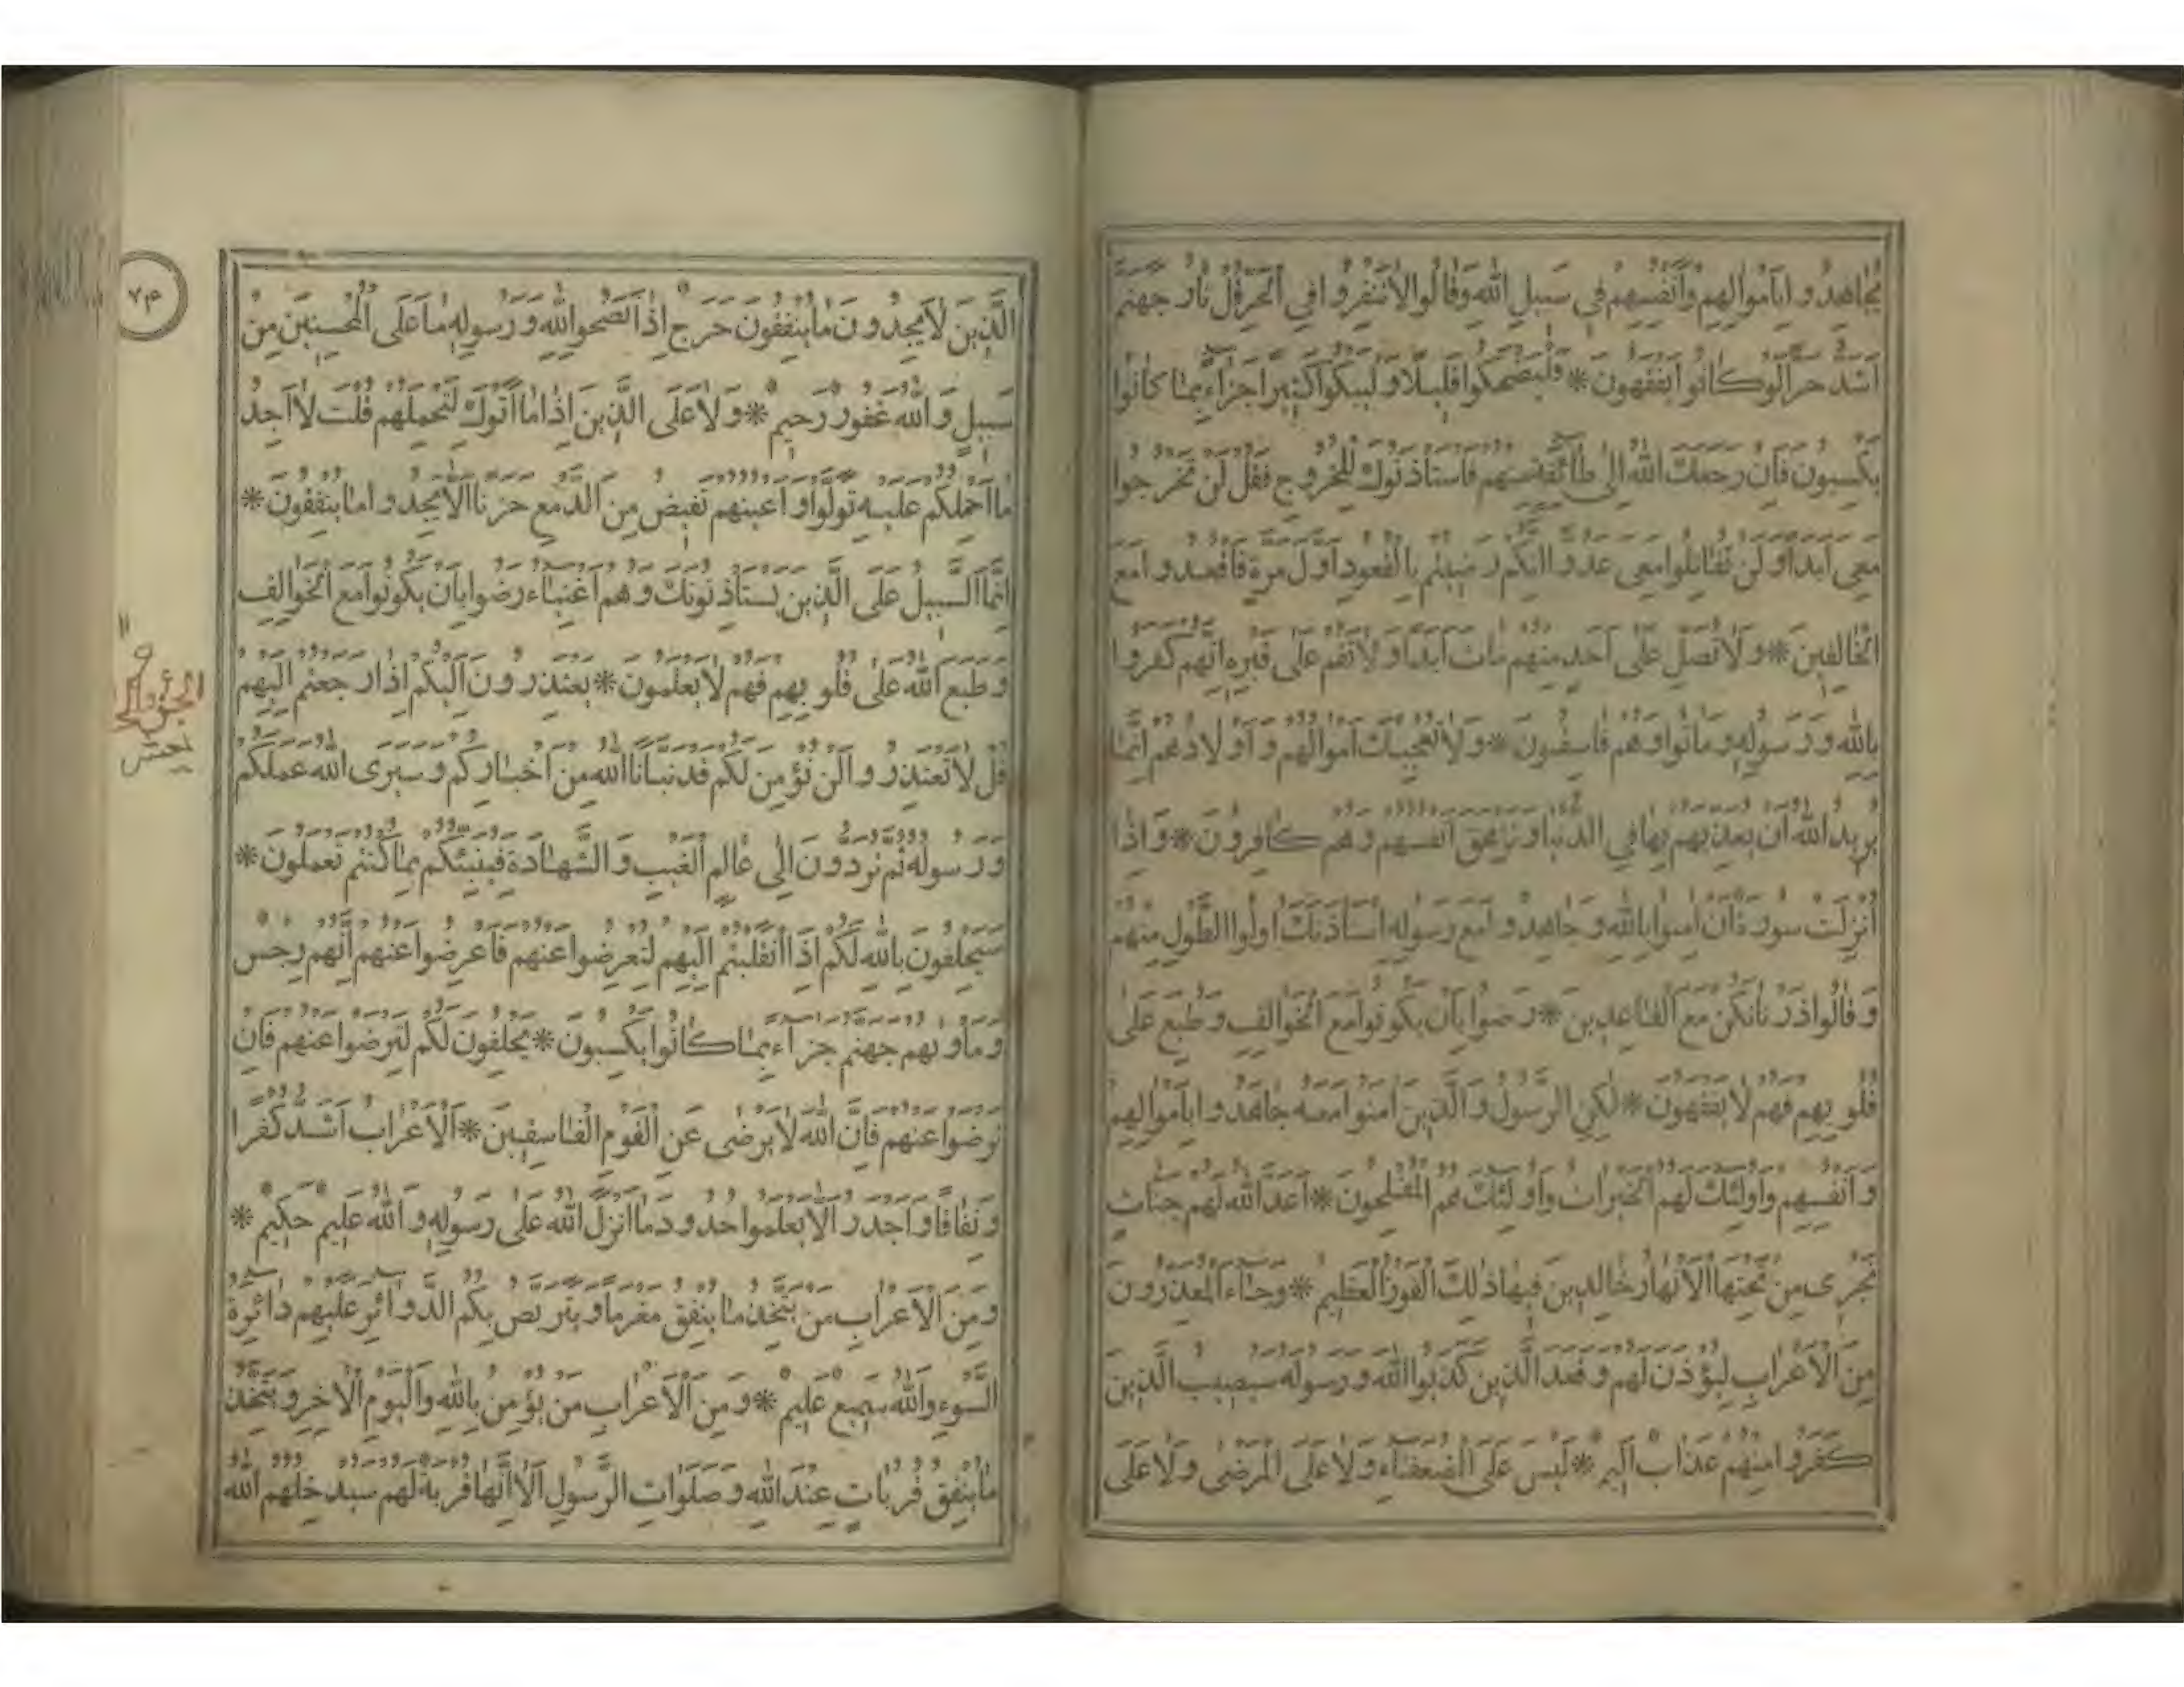 يُجَاهِدُوا بِأَمْوَالِهِمْ وَأَنْفُسِهِمْ فِي سَبِيلِ اللَّهِ وَقَالُوا لَا تَنْفِرُوا فِي الْحَرِّ قُلْ نَارُ جَهَنَّمَ
أَشَدُّ حَرًّا لَوْ كَانُوا يَفْقَهُونَ * فَلْيَضْحَكُوا قَلِيلًا وَلْيَبْكُوا كَثِيرًا جَزَاءً بِمَا كَانُوا
يَكْسِبُونَ فَإِنْ رَجَعَكَ اللَّهُ إِلَى طَائِفَةٍ مِنْهُمْ فَاسْتَأْذَنُوكَ لِلْخُرُوجِ فَقُلْ لَنْ تَخْرُجُوا
مَعِيَ أَبَدًا وَلَنْ تُقَاتِلُوا مَعِيَ عَدُوًّا إِنَّكُمْ رَضِيتُمْ بِالْقُعُودِ أَوَّلَ مَرَّةٍ فَاقْعُدُوا مَعَ
الْخَالِفِينَ * وَلَا تُصَلِّ عَلَى أَحَدٍ مِنْهُمْ مَاتَ أَبَدًا وَلَا تَقُمْ عَلَى قَبْرِهِ إِنَّهُمْ كَفَرُوا
بِاللَّهِ وَرَسُولِهِ وَمَاتُوا وَهُمْ فَاسِقُونَ * وَلَا تُعْجِبْكَ أَمْوَالُهُمْ وَأَوْلَادُهُمْ إِنَّمَا
يُرِيدُ اللَّهُ أَنْ يُعَذِّبَهُمْ بِهَا فِي الدُّنْيَا وَتَزْهَقَ أَنْفُسُهُمْ وَهُمْ كَافِرُونَ * وَإِذَا
أُنْزِلَتْ سُورَةٌ أَنْ آمِنُوا بِاللَّهِ وَجَاهِدُوا مَعَ رَسُولِهِ اسْتَأْذَنَكَ أُولُوا الطَّوْلِ مِنْهُمْ
وَقَالُوا ذَرْنَا نَكُنْ مَعَ الْقَاعِدِينَ * رَضُوا بِأَنْ يَكُونُوا مَعَ الْخَوَالِفِ وَطُبِعَ عَلَى
قُلُوبِهِمْ فَهُمْ لَا يَفْقَهُونَ * لَكِنِ الرَّسُولُ وَالَّذِينَ آمَنُوا مَعَهُ جَاهَدُوا بِأَمْوَالِهِمْ
وَأَنْفُسِهِمْ وَأُولَئِكَ لَهُمُ الْخَيْرَاتُ وَأُولَئِكَ هُمُ الْمُفْلِحُونَ * أَعَدَّ اللَّهُ لَهُمْ جَنَّاتٍ
تَجْرِي مِنْ تَحْتِهَا الْأَنْهَارُ خَالِدِينَ فِيهَا ذَلِكَ الْفَوْزُ الْعَظِيمُ * وَجَاءَ الْمُعَذِّرُونَ
مِنَ الْأَعْرَابِ لِيُؤْذَنَ لَهُمْ وَقَعَدَ الَّذِينَ كَذَبُوا اللَّهَ وَرَسُولَهُ سَيُصِيبُ الَّذِينَ
كَفَرُوا مِنْهُمْ عَذَابٌ أَلِيمٌ * لَيْسَ عَلَى الضُّعَفَاءِ وَلَا عَلَى الْمَرْضَى وَلَا عَلَى
الَّذِينَ لَا يَجِدُونَ مَا يُنْفِقُونَ حَرَجٌ إِذَا نَصَحُوا لِلَّهِ وَرَسُولِهِ مَا عَلَى الْمُحْسِنِينَ مِنْ
سَبِيلٍ وَاللَّهُ غَفُورٌ رَحِيمٌ * وَلَا عَلَى الَّذِينَ إِذَا مَا أَتَوْكَ لِتَحْمِلَهُمْ قُلْتَ لَا أَجِدُ
مَا أَحْمِلُكُمْ عَلَيْهِ تَوَلَّوْا وَأَعْيُنُهُمْ تَفِيضُ مِنَ الدَّمْعِ حَزَنًا أَلَّا يَجِدُوا مَا يُنْفِقُونَ *
إِنَّمَا السَّبِيلُ عَلَى الَّذِينَ يَسْتَأْذِنُونَكَ وَهُمْ أَغْنِيَاءُ رَضُوا بِأَنْ يَكُونُوا مَعَ الْخَوَالِفِ
وَطَبَعَ اللَّهُ عَلَى قُلُوبِهِمْ فَهُمْ لَا يَعْلَمُونَ * يَعْتَذِرُونَ إِلَيْكُمْ إِذَا رَجَعْتُمْ إِلَيْهِمْ
قُلْ لَا تَعْتَذِرُوا لَنْ نُؤْمِنَ لَكُمْ قَدْ نَبَّأَنَا اللَّهُ مِنْ أَخْبَارِكُمْ وَسَيَرَى اللَّهُ عَمَلَكُمْ
وَرَسُولُهُ ثُمَّ تُرَدُّونَ إِلَى عَالِمِ الْغَيْبِ وَالشَّهَادَةِ فَيُنَبِّئُكُمْ بِمَا كُنْتُمْ تَعْمَلُونَ *
سَيَحْلِفُونَ بِاللَّهِ لَكُمْ إِذَا انْقَلَبْتُمْ إِلَيْهِمْ لِتُعْرِضُوا عَنْهُمْ فَأَعْرِضُوا عَنْهُمْ إِنَّهُمْ رِجْسٌ
وَمَأْوَيهُمْ جَهَنَّمُ جَزَاءً بِمَا كَانُوا يَكْسِبُونَ * يَحْلِفُونَ لَكُمْ لِتَرْضَوْا عَنْهُمْ فَإِنْ
تَرْضَوْا عَنْهُمْ فَإِنَّ اللَّهَ لَا يَرْضَى عَنِ الْقَوْمِ الْفَاسِقِينَ * الْأَعْرَابُ أَشَدُّ كُفْرًا
وَنِفَاقًا وَأَجْدَرُ أَلَّا يَعْلَمُوا حُدُودَ مَا أَنْزَلَ اللَّهُ عَلَى رَسُولِهِ وَاللَّهُ عَلِيمٌ حَكِيمٌ *
وَمِنَ الْأَعْرَابِ مَنْ يَتَّخِذُ مَا يُنْفِقُ مَغْرَمًا وَيَتَرَبَّصُ بِكُمُ الدَّوَائِرَ عَلَيْهِمْ دَائِرَةُ
السَّوْءِ وَاللَّهُ سَمِيعٌ عَلِيمٌ * وَمِنَ الْأَعْرَابِ مَنْ يُؤْمِنُ بِاللَّهِ وَالْيَوْمِ الْآخِرِ وَيَتَّخِذُ
مَا يُنْفِقُ قُرُبَاتٍ عِنْدَ اللَّهِ وَصَلَوَاتِ الرَّسُولِ أَلَا إِنَّهَا قُرْبَةٌ لَهُمْ سَيُدْخِلُهُمُ اللَّهُ
٧٤
١١